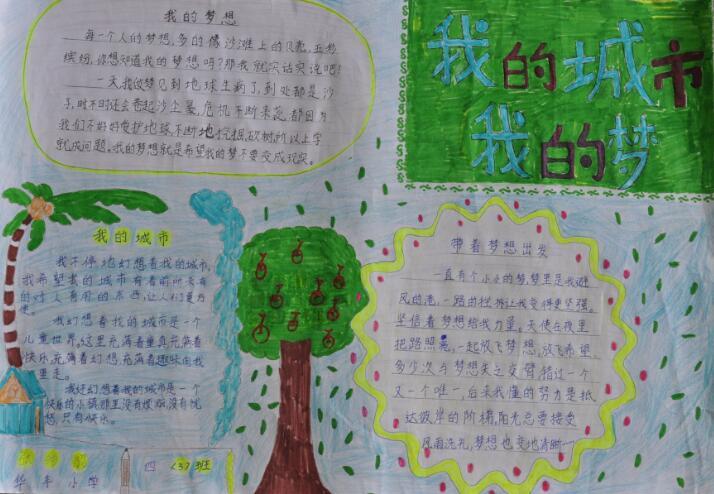 我的城市
我的梦
我的梦想
每一个人的梦想,多的像沙滩上的贝壳,五彩
缤纷,你想知道我的梦想吗?那我就实话实说吧!
一天,我做梦见到地球生病了,到处都是沙
子,时不时还会卷起沙尘暴,危机不断来
我们不好好爱护地球,不断地挖掘,砍树,所以上学
就成问题。我的梦想就是希望我的梦不要变成现实。
我的城市
我不停地幻想着我的城市,
我希望我的城市有着前所未有
的对人有用的东西,让人们更方
便。
我幻想着我的城市是一个
儿童世界,这里充满着童真,充满着
快乐,充满着幻想,充满着趣味,向我
里走。
我还幻想着我的城市是一个
快乐的小镇,那里没有烦恼,没有忧
愁,只有快乐。
带着梦想出发
一直有个小小的梦,梦里是我避
风的港,一路的让我变得更坚强。
坚信着梦想给我力量,天使在夜里
把路照亮,一起放飞梦想,放飞希望
多少次与梦想失之交臂,错过一个
又一个唯一,后来我懂的努力是抵
达彼岸的阶梯,阳光总要接受
风雨洗礼,梦想也变地清晰…
华丰小学
四 <3> 班